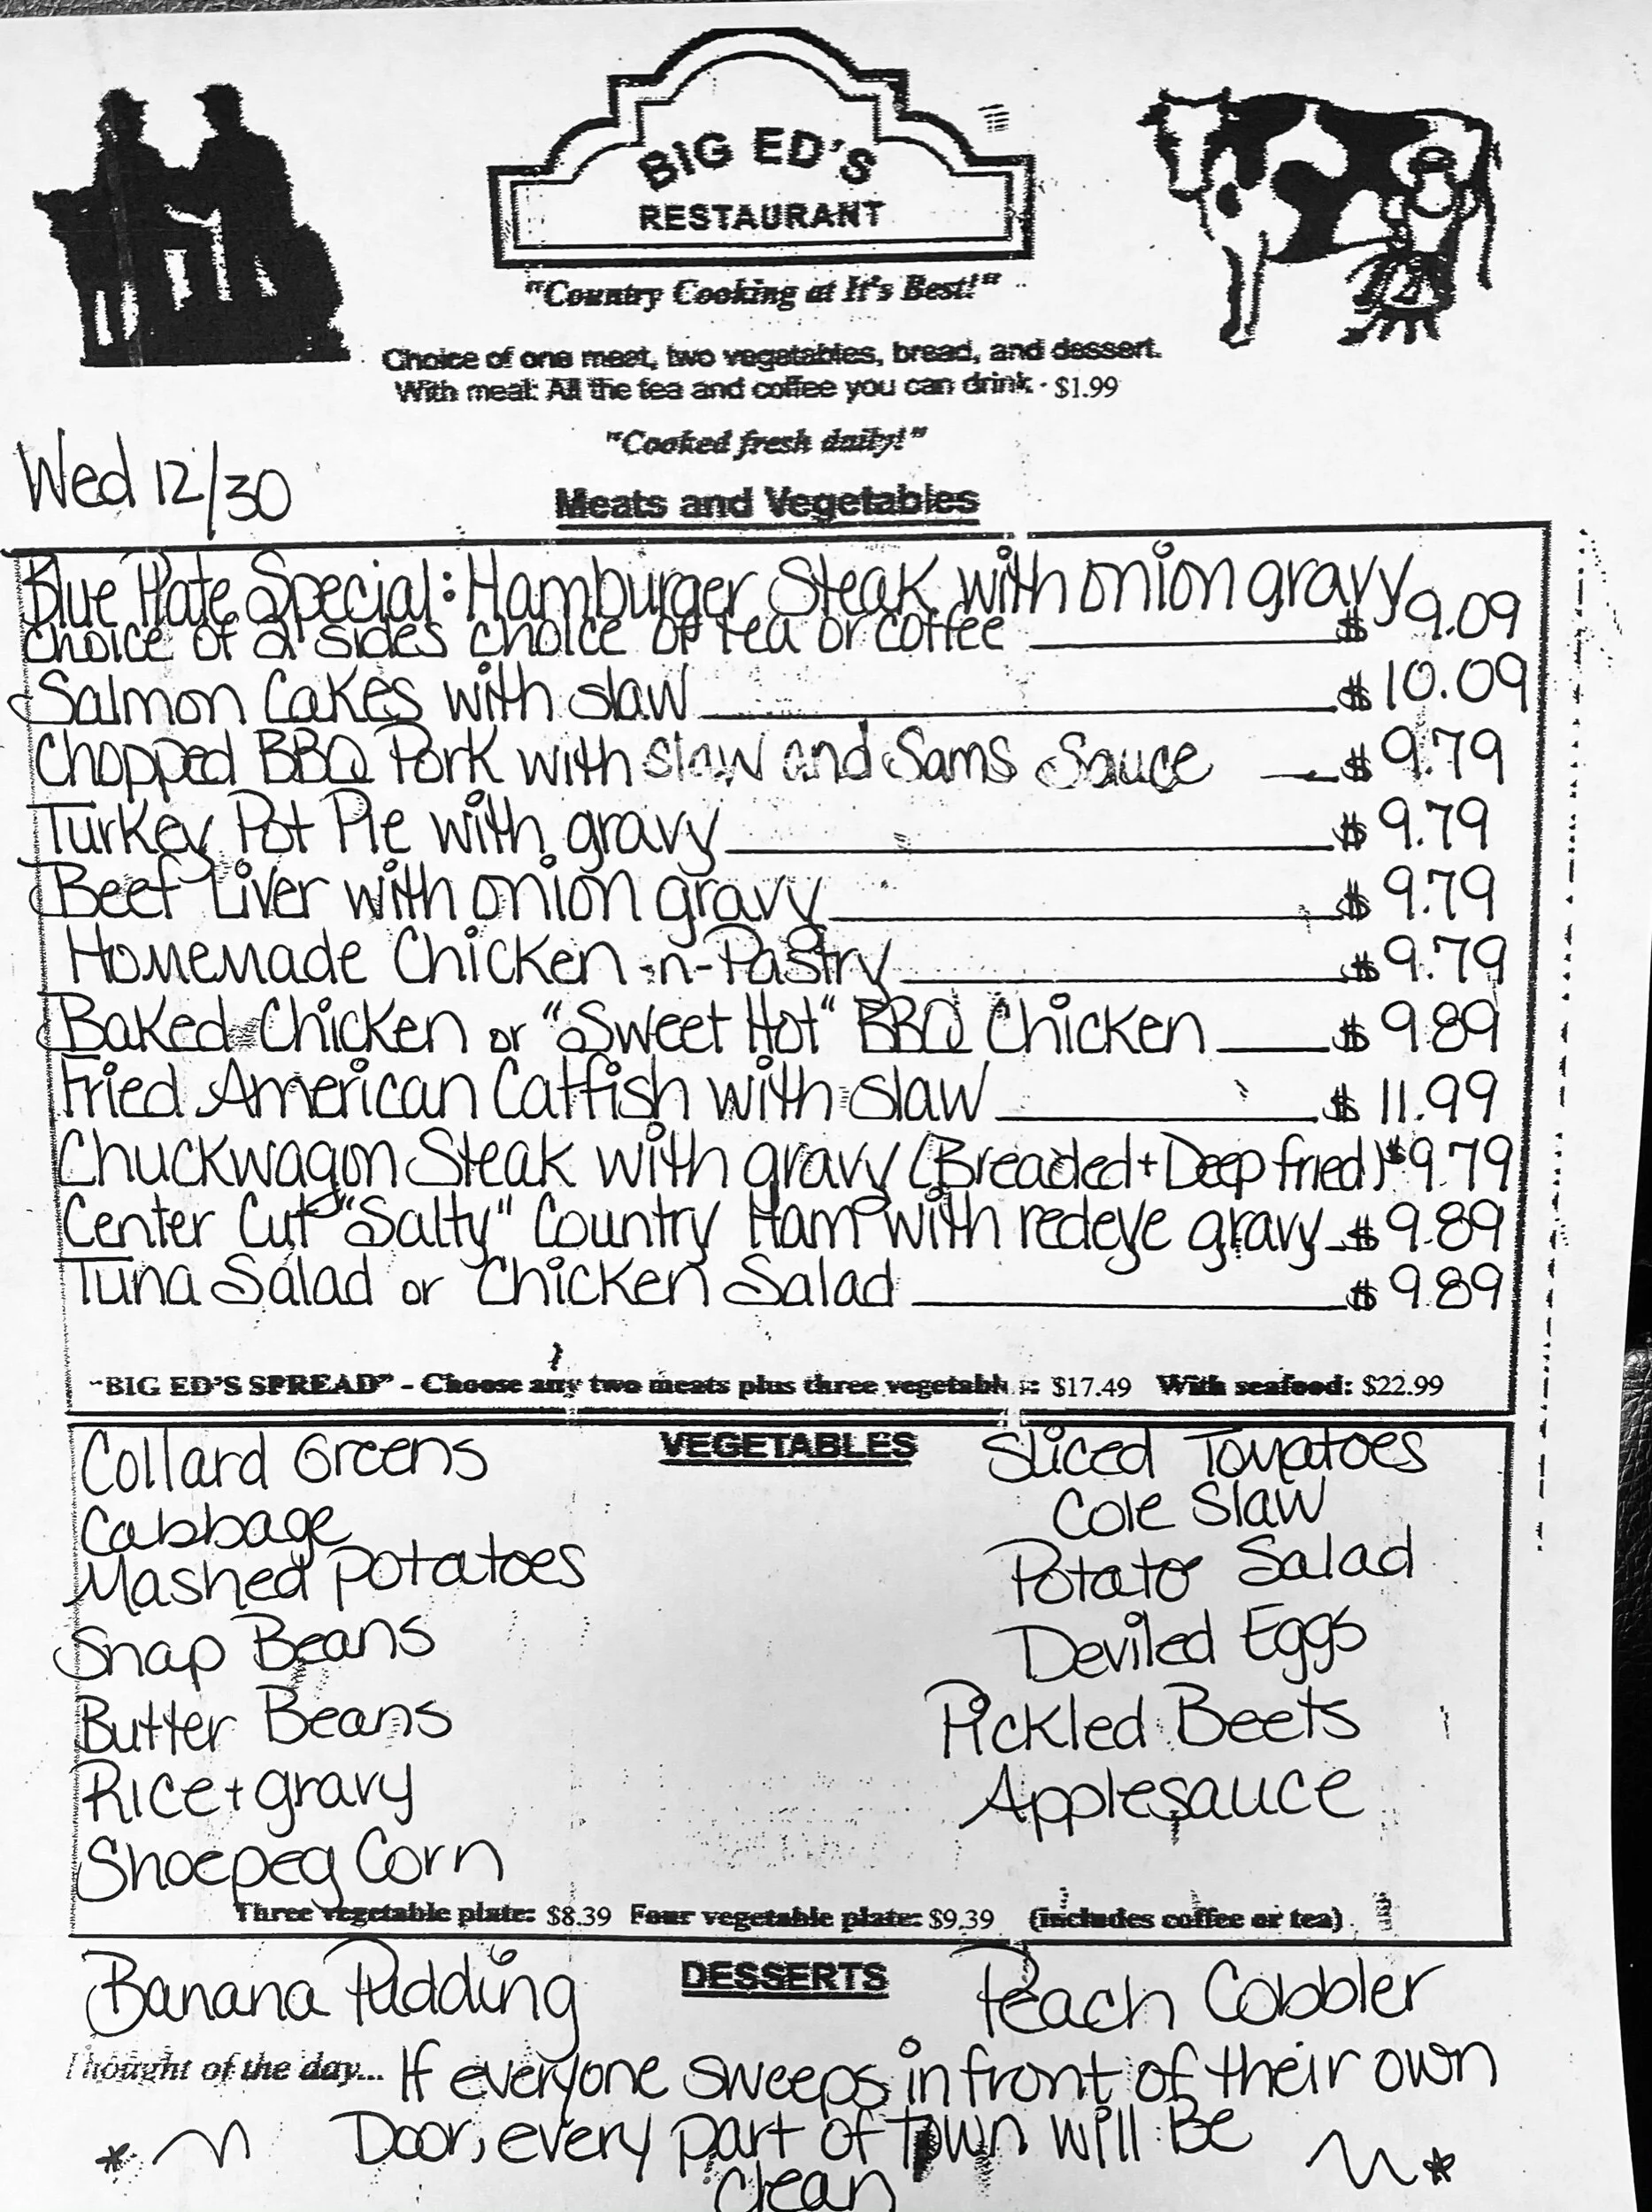 BIG ED'S
RESTAURANT
"Country Cooking at It's Best!"
Choice of one meat, two vegetables, bread, and dessert.
With meal: All the tea and coffee you can drink - $1.99
"Cooked fresh daily!"
Wed 12/30
Meats and Vegetables
Blue Plate Special: Hamburger Steak with onion gravy
choice of 2 sides choice of tea or coffee $ 9.09
Salmon Cakes with slaw $ 10.09
Chopped BBQ Pork with slaw and Sams Sauce $ 9.79
Turkey Pot Pie with gravy $ 9.79
Beef Liver with onion gravy $ 9.79
Homemade Chicken -n- Pastry $ 9.79
Baked Chicken or "Sweet Hot" BBQ Chicken $ 9.89
Fried American Catfish with slaw $ 11.99
Chuckwagon Steak with gravy (Breaded + Deep fried) $ 9.79
Center Cut "Salty" Country Ham with redeye gravy $ 9.89
Tuna Salad or Chicken Salad $ 9.89
"BIG ED'S SPREAD" - Choose any two meats plus three vegetables: $17.49 With seafood: $22.99
VEGETABLES
Collard Greens
Cabbage
Mashed Potatoes
Snap Beans
Butter Beans
Rice + gravy
Shoepeg Corn
Sliced Tomatoes
Cole Slaw
Potato Salad
Deviled Eggs
Pickled Beets
Applesauce
Three vegetable plate: $8.39 Four vegetable plate: $9.39 (includes coffee or tea)
DESSERTS
Banana Pudding
Peach Cobbler
Thought of the day... If everyone sweeps in front of their own
Door, every part of Town will Be
clean